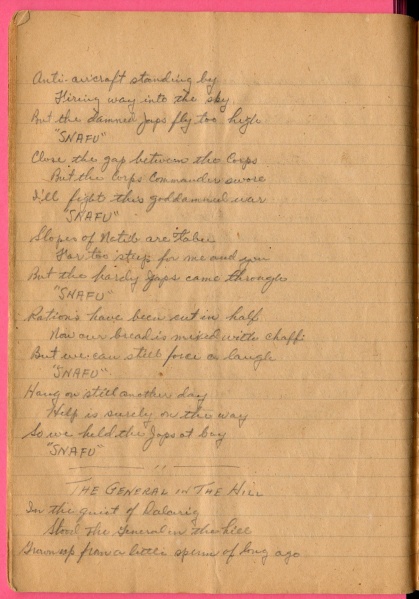 Anti-aircraft standing by
Firing way into the sky
But the damned Japs fly too high
"SNAFU"
Close the gap between the Corps
But the Corps Commander swore
I'll fight this goddamned war
"SNAFU"
Slopes of Natib are taboo
Far too steep for me and you
But the hardy Japs came through
"SNAFU"
Rations have been cut in half
Now our bread is mixed with chaff
But we can still force a laugh
"SNAFU"
Hang on still another day
Help is surely on the way
So we held the Japs at bay
"SNAFU"
THE GENERAL IN THE HILL
In the quiet of
Stood The General in the hill
Grown up from a little sperm of long ago